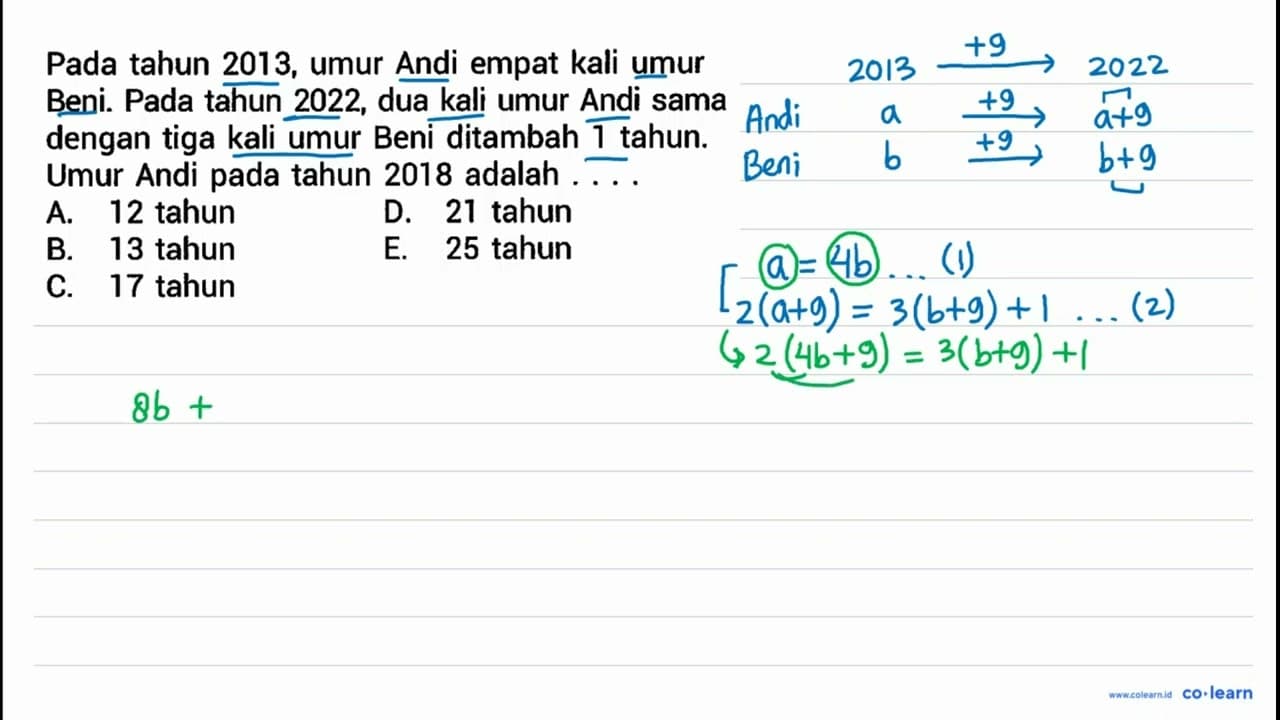 Pada tahun 2013, umur Andi empat kali umur
Beni. Pada tahun 2022, dua kali umur Andi sama
dengan tiga kali umur Beni ditambah 1 tahun.
Umur Andi pada tahun 2018 adalah . . . .
A. 12 tahun
B. 13 tahun
C. 17 tahun
D. 21 tahun
E. 25 tahun
2013 +9 → 2022
Andi a +9 → a+9
Beni b +9 → b+9
a = 4b ... (1)
2(a+9) = 3(b+9) + 1 ... (2)
↳ 2(4b+9) = 3(b+9) + 1
8b +
www.colearn.id co·learn